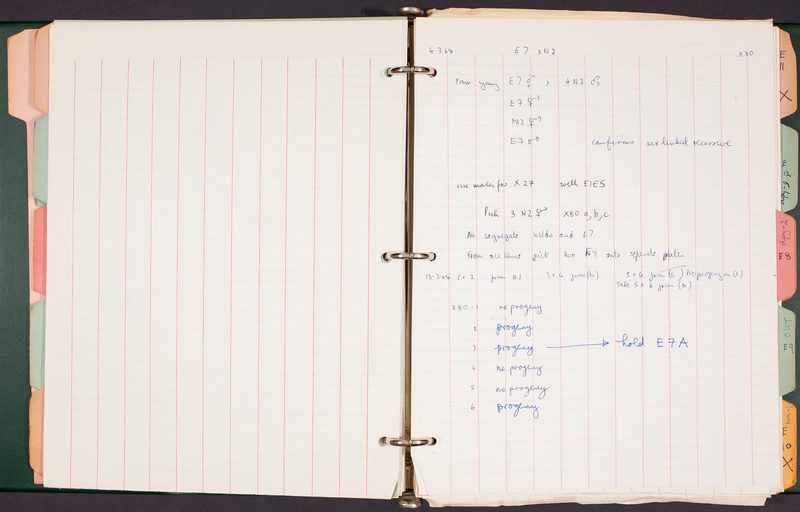 4.3.68. E7 x N2 X80
Four young E7 ⚥, 4 N2 ♂
E7 ⚥
N2 ⚥
E7 ♂ confirms sex linked recessive
use males for X27 with E1E5
Pick 3 N2 ⚥ X80 a, b, c
All segregate wilds and E7
From all three pick two E7 onto separate plates
13.3.68 1 & 2 from a) 3 & 4 from (b) 5 & 6 from (c) No progeny in (c)
Take 5 & 6 from (b)
X80-1 no progeny
2 progeny
3 progeny → hold E7A
4 no progeny
5 no progeny
6 progeny
E
11
X
dpy-2
E8
OUT
E9
E
10
X